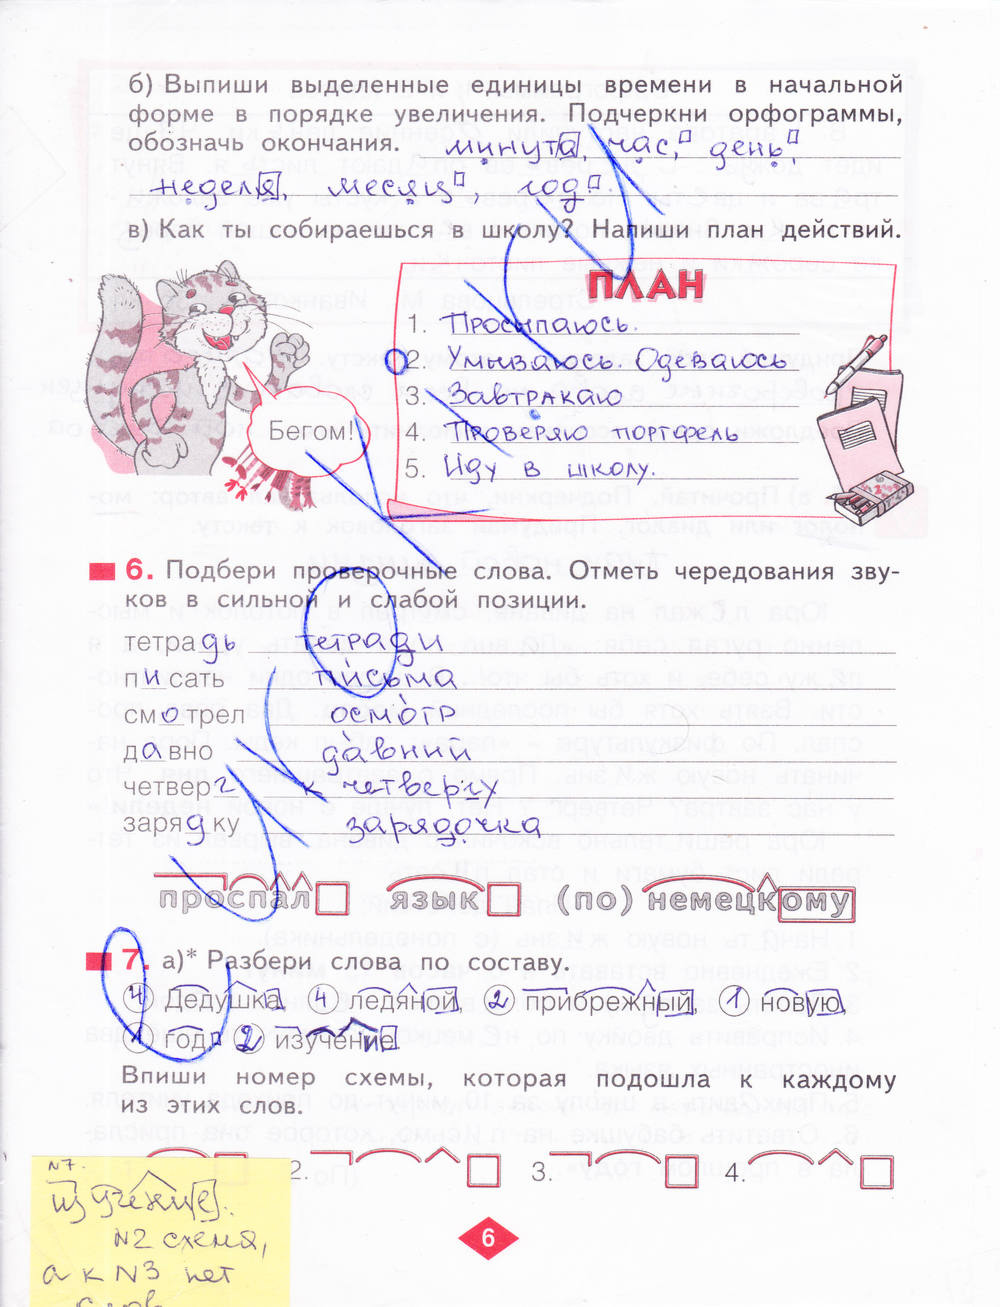 б) Выпиши выделенные единицы времени в начальной
форме в порядке увеличения. Подчеркни орфограммы,
обозначь окончания. минута, час, день,
неделя, месяц, год.
в) Как ты собираешься в школу? Напиши план действий.
ПЛАН
1. Просыпаюсь.
2. Умываюсь. Одеваюсь
3. Завтракаю
Бегом!
4. Проверяю портфель
5. Иду в школу.
6. Подбери проверочные слова. Отметь чередования зву-
ков в сильной и слабой позиции.
тетрадь тетради
писать письма
смотрел осмотр
давно давний
четверг к четвергу
зарядку зарядочка
проспал язык (по) немецкому
7. а)* Разбери слова по составу.
4 Дедушка, 4 ледяной, 2 прибрежный, 1 новую,
год, 2 изучение
Впиши номер схемы, которая подошла к каждому
из этих слов.
2. 3. 4.
№7.
изучение.
№2 схема,
а к №3 нет
слов
6